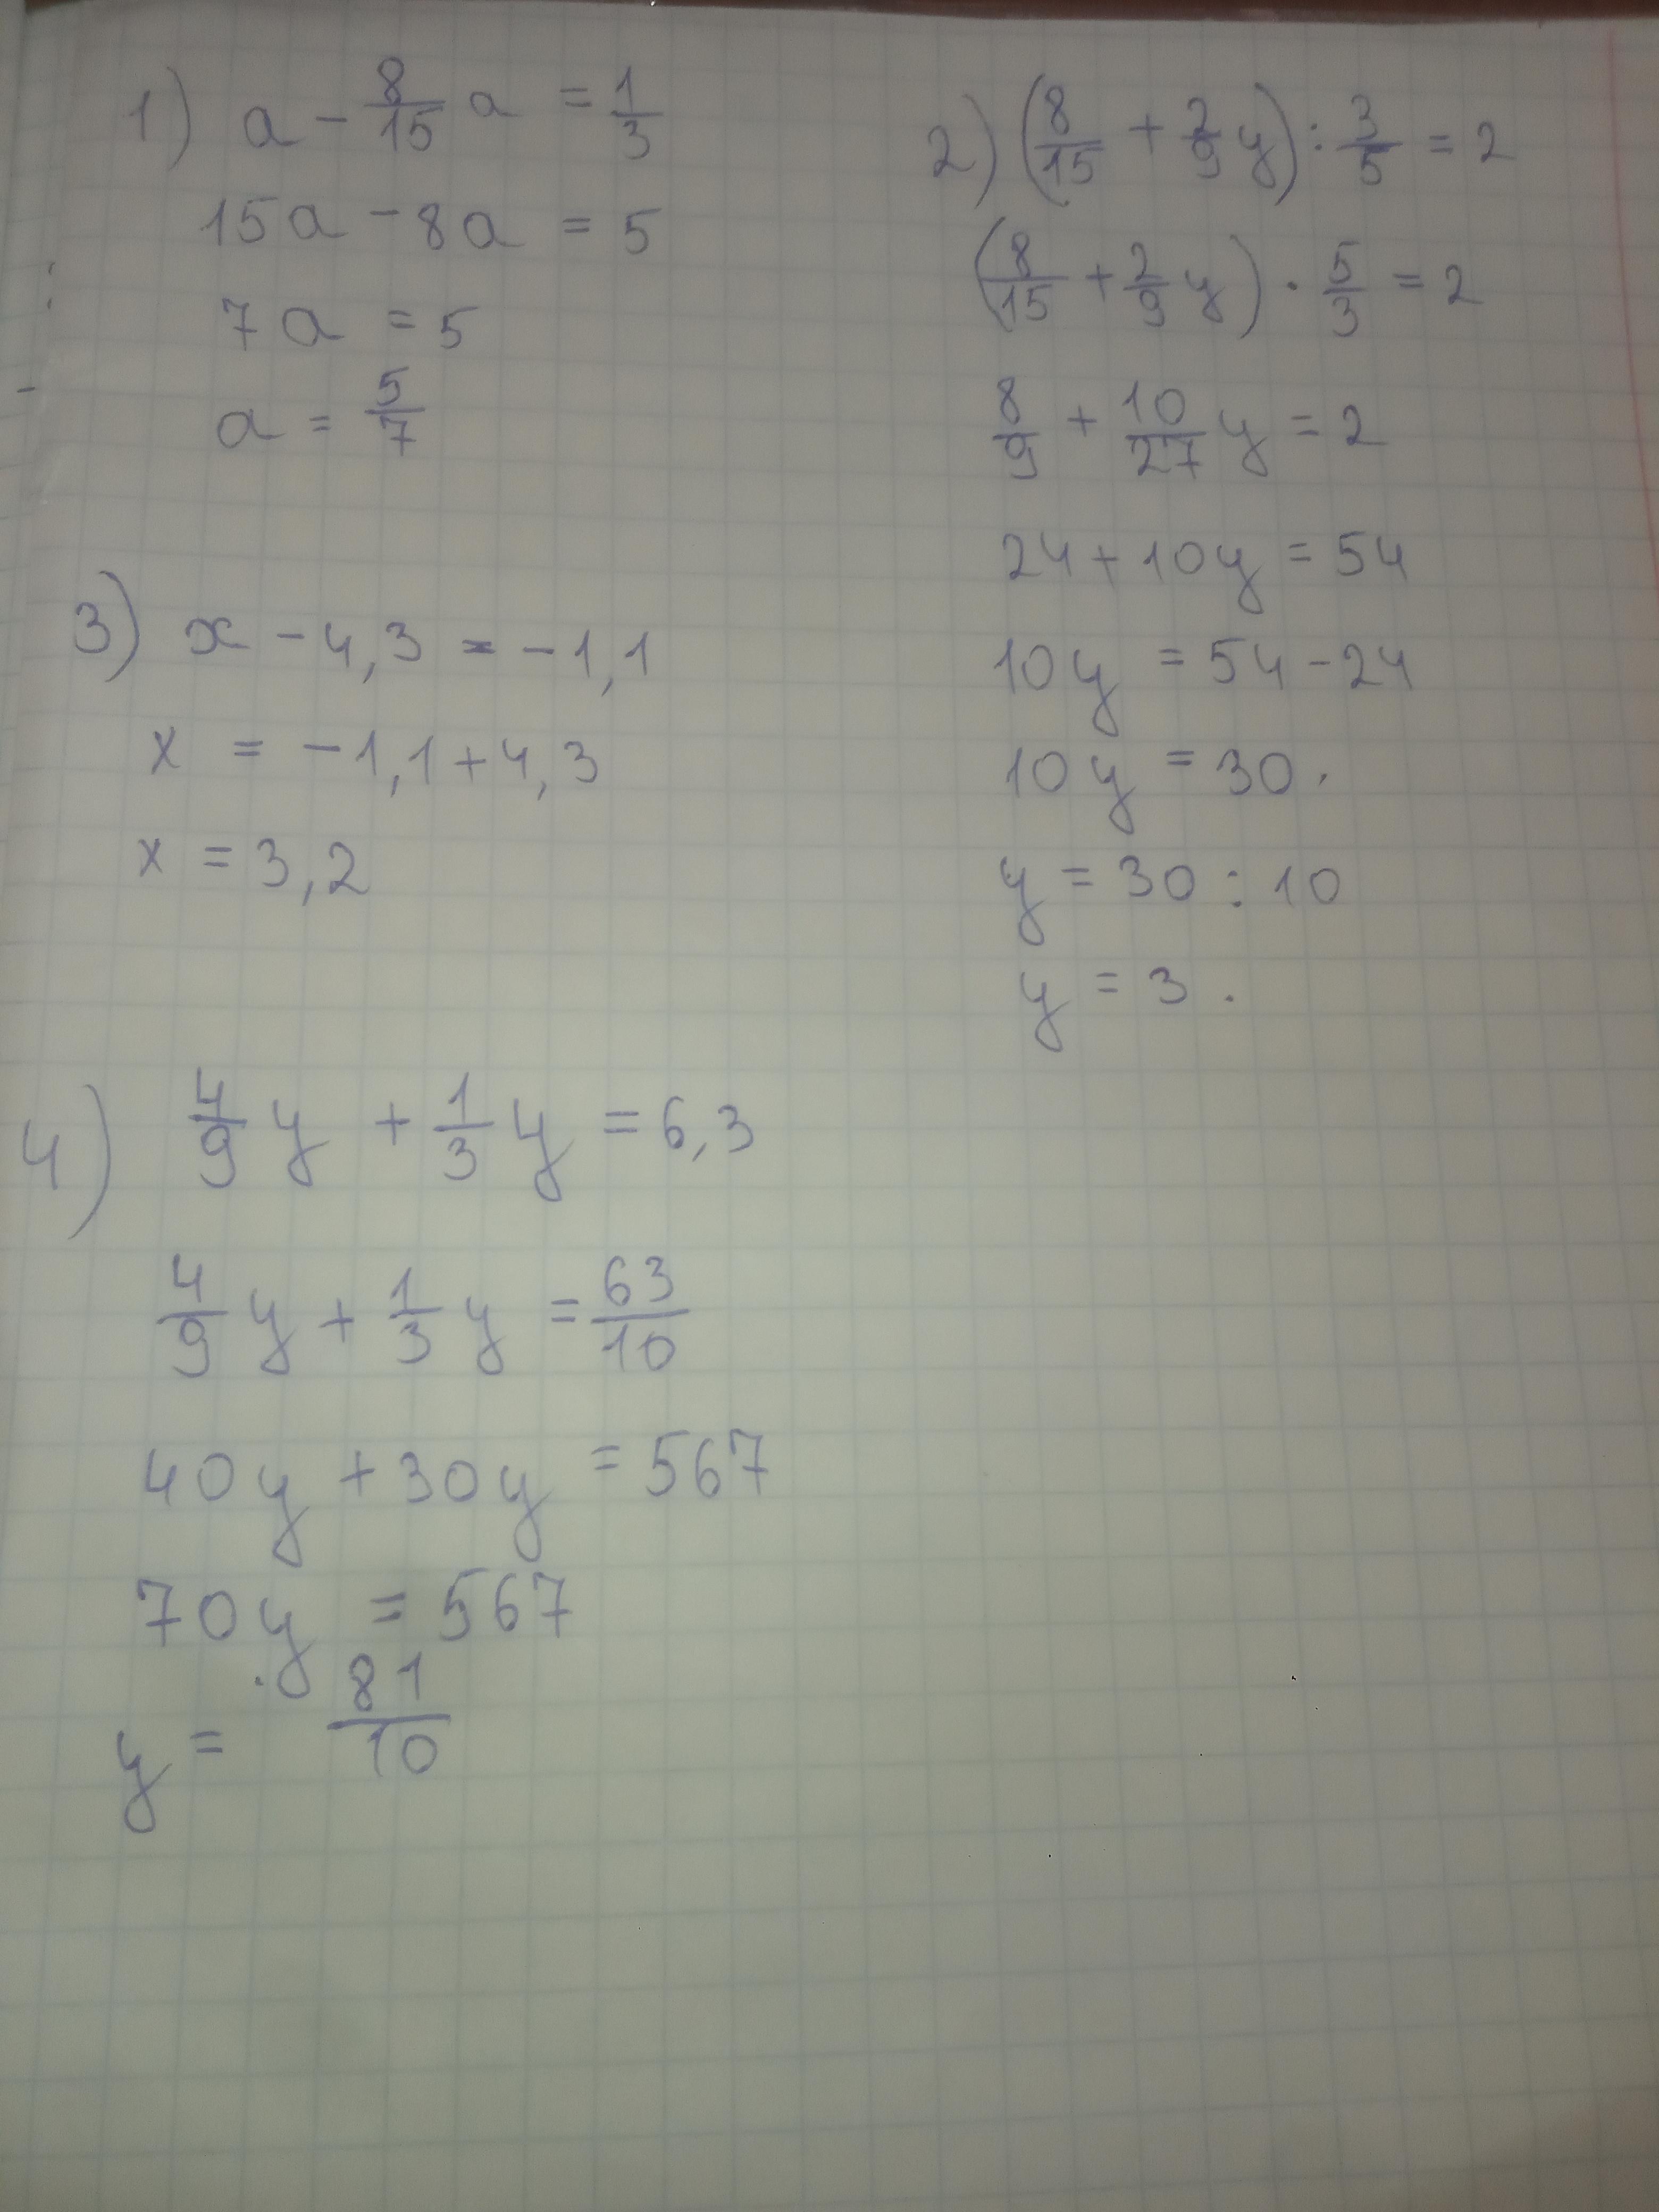 1) a - 8/15 a = 1/3
15a - 8a = 5
7a = 5
a = 5/7
2) (8/15 + 2/9 y) : 3/5 = 2
(8/15 + 2/9 y) · 5/3 = 2
8/9 + 10/27 y = 2
24 + 10y = 54
10y = 54 - 24
10y = 30.
y = 30 : 10
y = 3.
3) x - 4,3 = -1,1
x = -1,1 + 4,3
x = 3,2
4) 4/9 y + 1/3 y = 6,3
4/9 y + 1/3 y = 63/10
40y + 30y = 567
70y = 567
y = 81/10